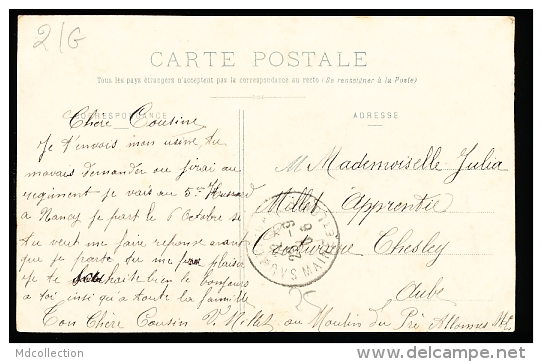 2/G
CARTE POSTALE
Tous les pays étrangers n'acceptent pas la correspondance au recto (Se renseigner à la Poste)
CORRESPONDANCE
ADRESSE
Chère Cousine
Je t'envois mon usine tu
mavais demander ou jirai au
regiment je vais au 5me Hussard
a Nancy je part le 6 Octobre si
tu veut me faire reponse avant
que je parte tu me fera plaisir
je te souhaite bien le bonjour
a toi insi qu'a toute la famille
Ton Chère Cousin V. Millet au Moulin du Pré Allonnes
M Mademoiselle Julia
Millet Apprentie
Couturière Chesley
Aube
Mdcollection
www.delcampe.net